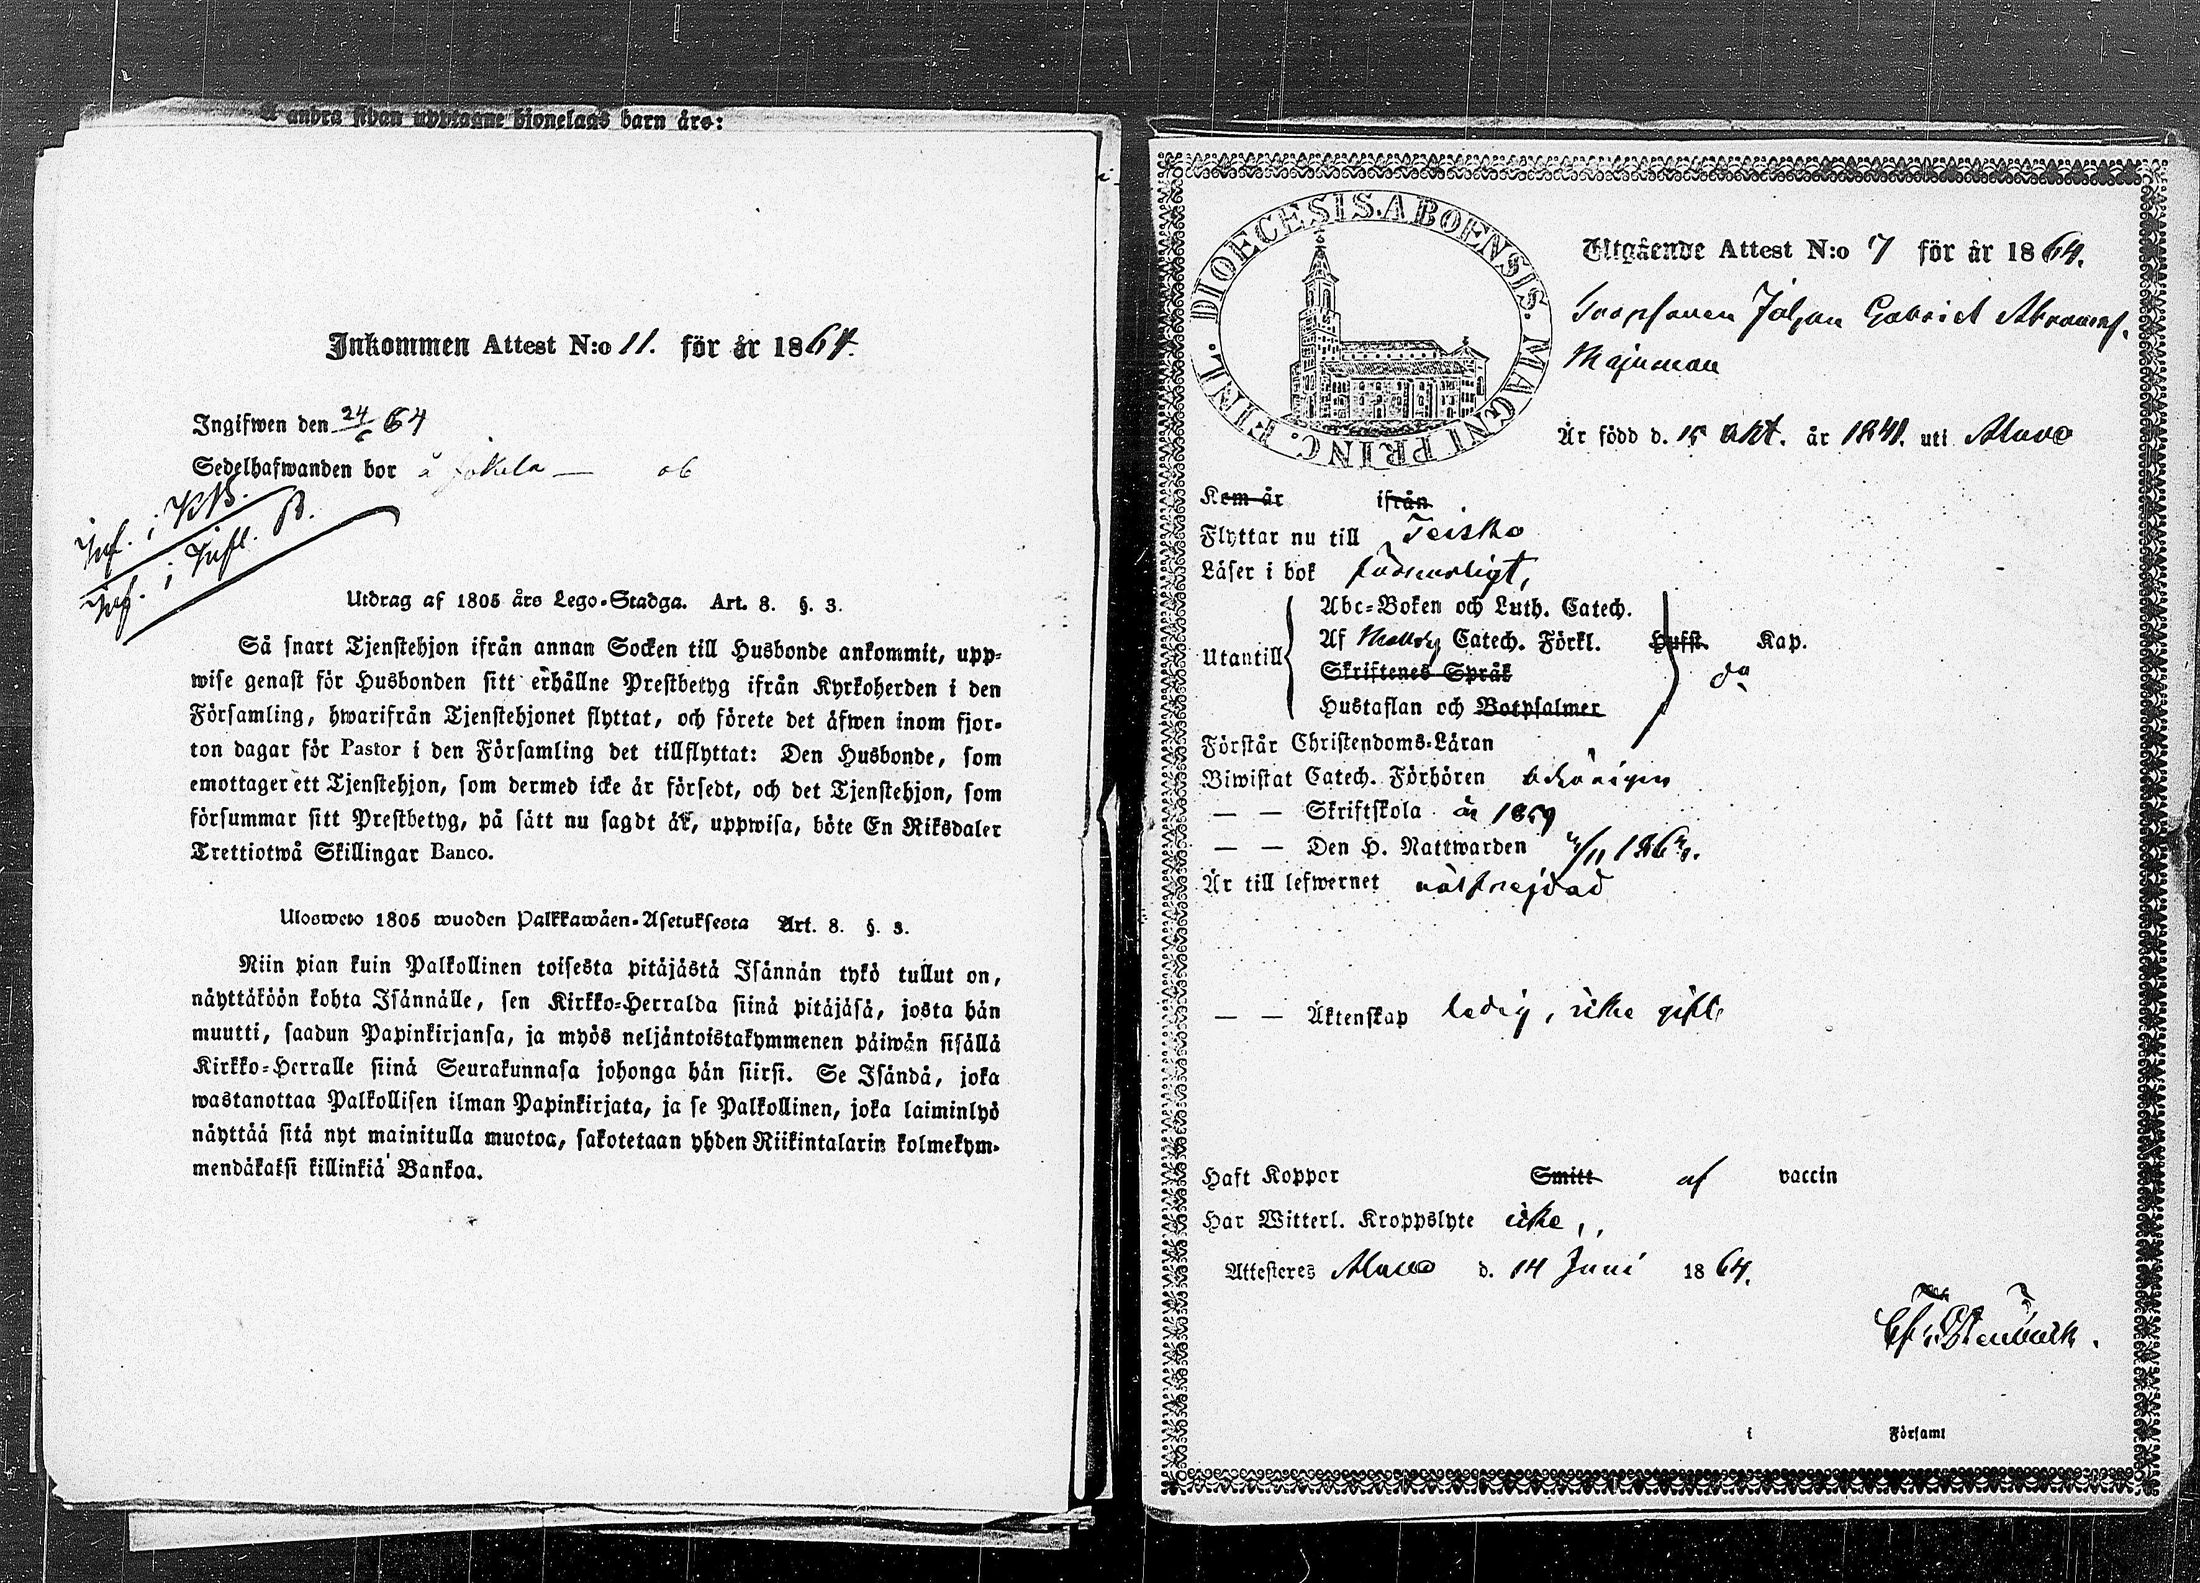 å andra sidan upptagne hjonelags barn äro:
Inkommen Attest N:o 11. för år 1864.
Ingifwen den 24/6 64
Sedelhafwanden bor å Jokela — ob
Inf. i KB.
Inf. i Infl. B.
Utdrag af 1805 års Lego-Stadga. Art. 8. §. 3.
Så snart Tjenstehjon ifrån annan Socken till Husbonde ankommit, upp-
wise genast för Husbonden sitt erhållne Prestbetyg ifrån Kyrkoherden i den
Församling, hwarifrån Tjenstehjonet flyttat, och förete det äfwen inom fjor-
ton dagar för Pastor i den Församling det tillflyttat: Den Husbonde, som
emottager ett Tjenstehjon, som dermed icke är försedt, och det Tjenstehjon, som
försummar sitt Prestbetyg, på sätt nu sagdt är, uppwisa, böte En Riksdaler
Trettiotwå Skillingar Banco.
Ulosweto 1805 wuoden Palkkawäen-Asetuksesta Art. 8. §. 3.
Niin pian kuin Palkollinen toisesta pitäjästä Isännän tykö tullut on,
näyttäköön kohta Isännälle, sen Kirkko-Herralda siinä pitäjäsä, josta hän
muutti, saadun Papinkirjansa, ja myös neljäntoistakymmenen päiwän sisällä
Kirkko-Herralle siinä Seurakunnasa johonga hän siirsi. Se Isändä, joka
wastanottaa Palkollisen ilman Papinkirjata, ja se Palkollinen, joka laiminlyö
näyttää sitä nyt mainitulla muotoa, sakotetaan yhden Riikintalarin kolmekym-
mendäkaksi killinkiä Bankoa.
DIOECESIS. ABOENSIS. MAGNI PRINC. FINL.
Utgående Attest N:o 7 för år 1864.
Johan Gabriel Abramsf.
Majuman
Är född d. 15 Okt. år 1841. uti Alavo
Kom år ifrån
Flyttar nu till Teisko
Läser i bok försvarligt,
Utantill
Abc-Boken och Luth. Catech.
Af Catech. Förkl. Hufst. Kap.
Skriftenes Språk
Hustaflan och Botpsalmer
do
Förstår Christendoms-Läran
Biwistat Catech. Förhören
— — Skriftskola år 1859
— — Den H. Nattwarden
Är till lefwernet välfrejdad
— — Äktenskap ledig, icke gift
Haft Koppor Smitt af vaccin
Har Witterl. Kroppslyte icke
Attesteres Alavo d. 14 Juni 1864.
i Förfaml